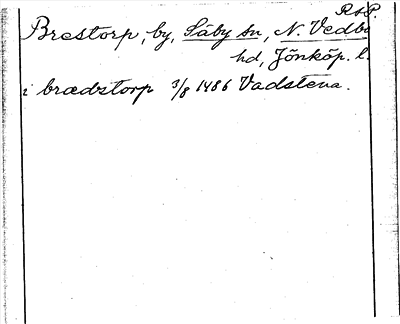 RAP.
Brestorp, by, Säby sn, N. Vedbo
hd, Jönköp. l.
i brædstorp 3/8 1486 Vadstena.